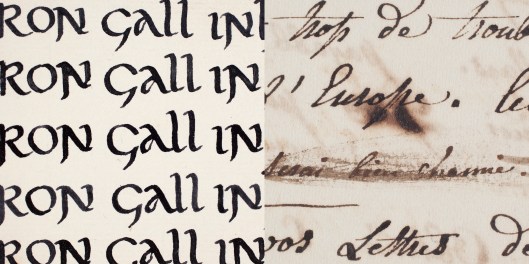 RON Gall IN
RON Gall IN
RON Gall IN
RON Gall IN
RON Gall IN
trop de
l'Europe. le
bien
vos Lettres de